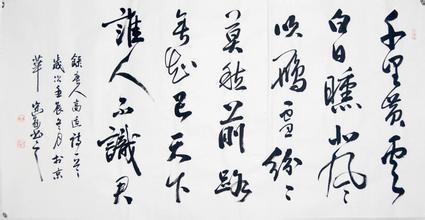 千里黄雲
白日曛北風
吹雁雪紛々
莫愁前路
無知己天下
誰人不識君
録唐人高適詩一首
歲次壬辰冬月於京
華